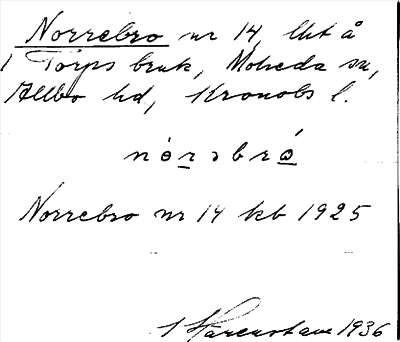 Norrebro nr 14, lht å
1 Torps bruk, Moheda sn,
Allbo hd, Kronobs l.
nòrəbró
Norrebro nr 14 kb 1925
1936